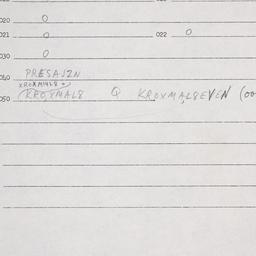 020 0
021 0 022 0
030 0
040 PRESAJZN
KROXMAL8
050 KROXMAL8 Q KROXMAL8EVEN (00